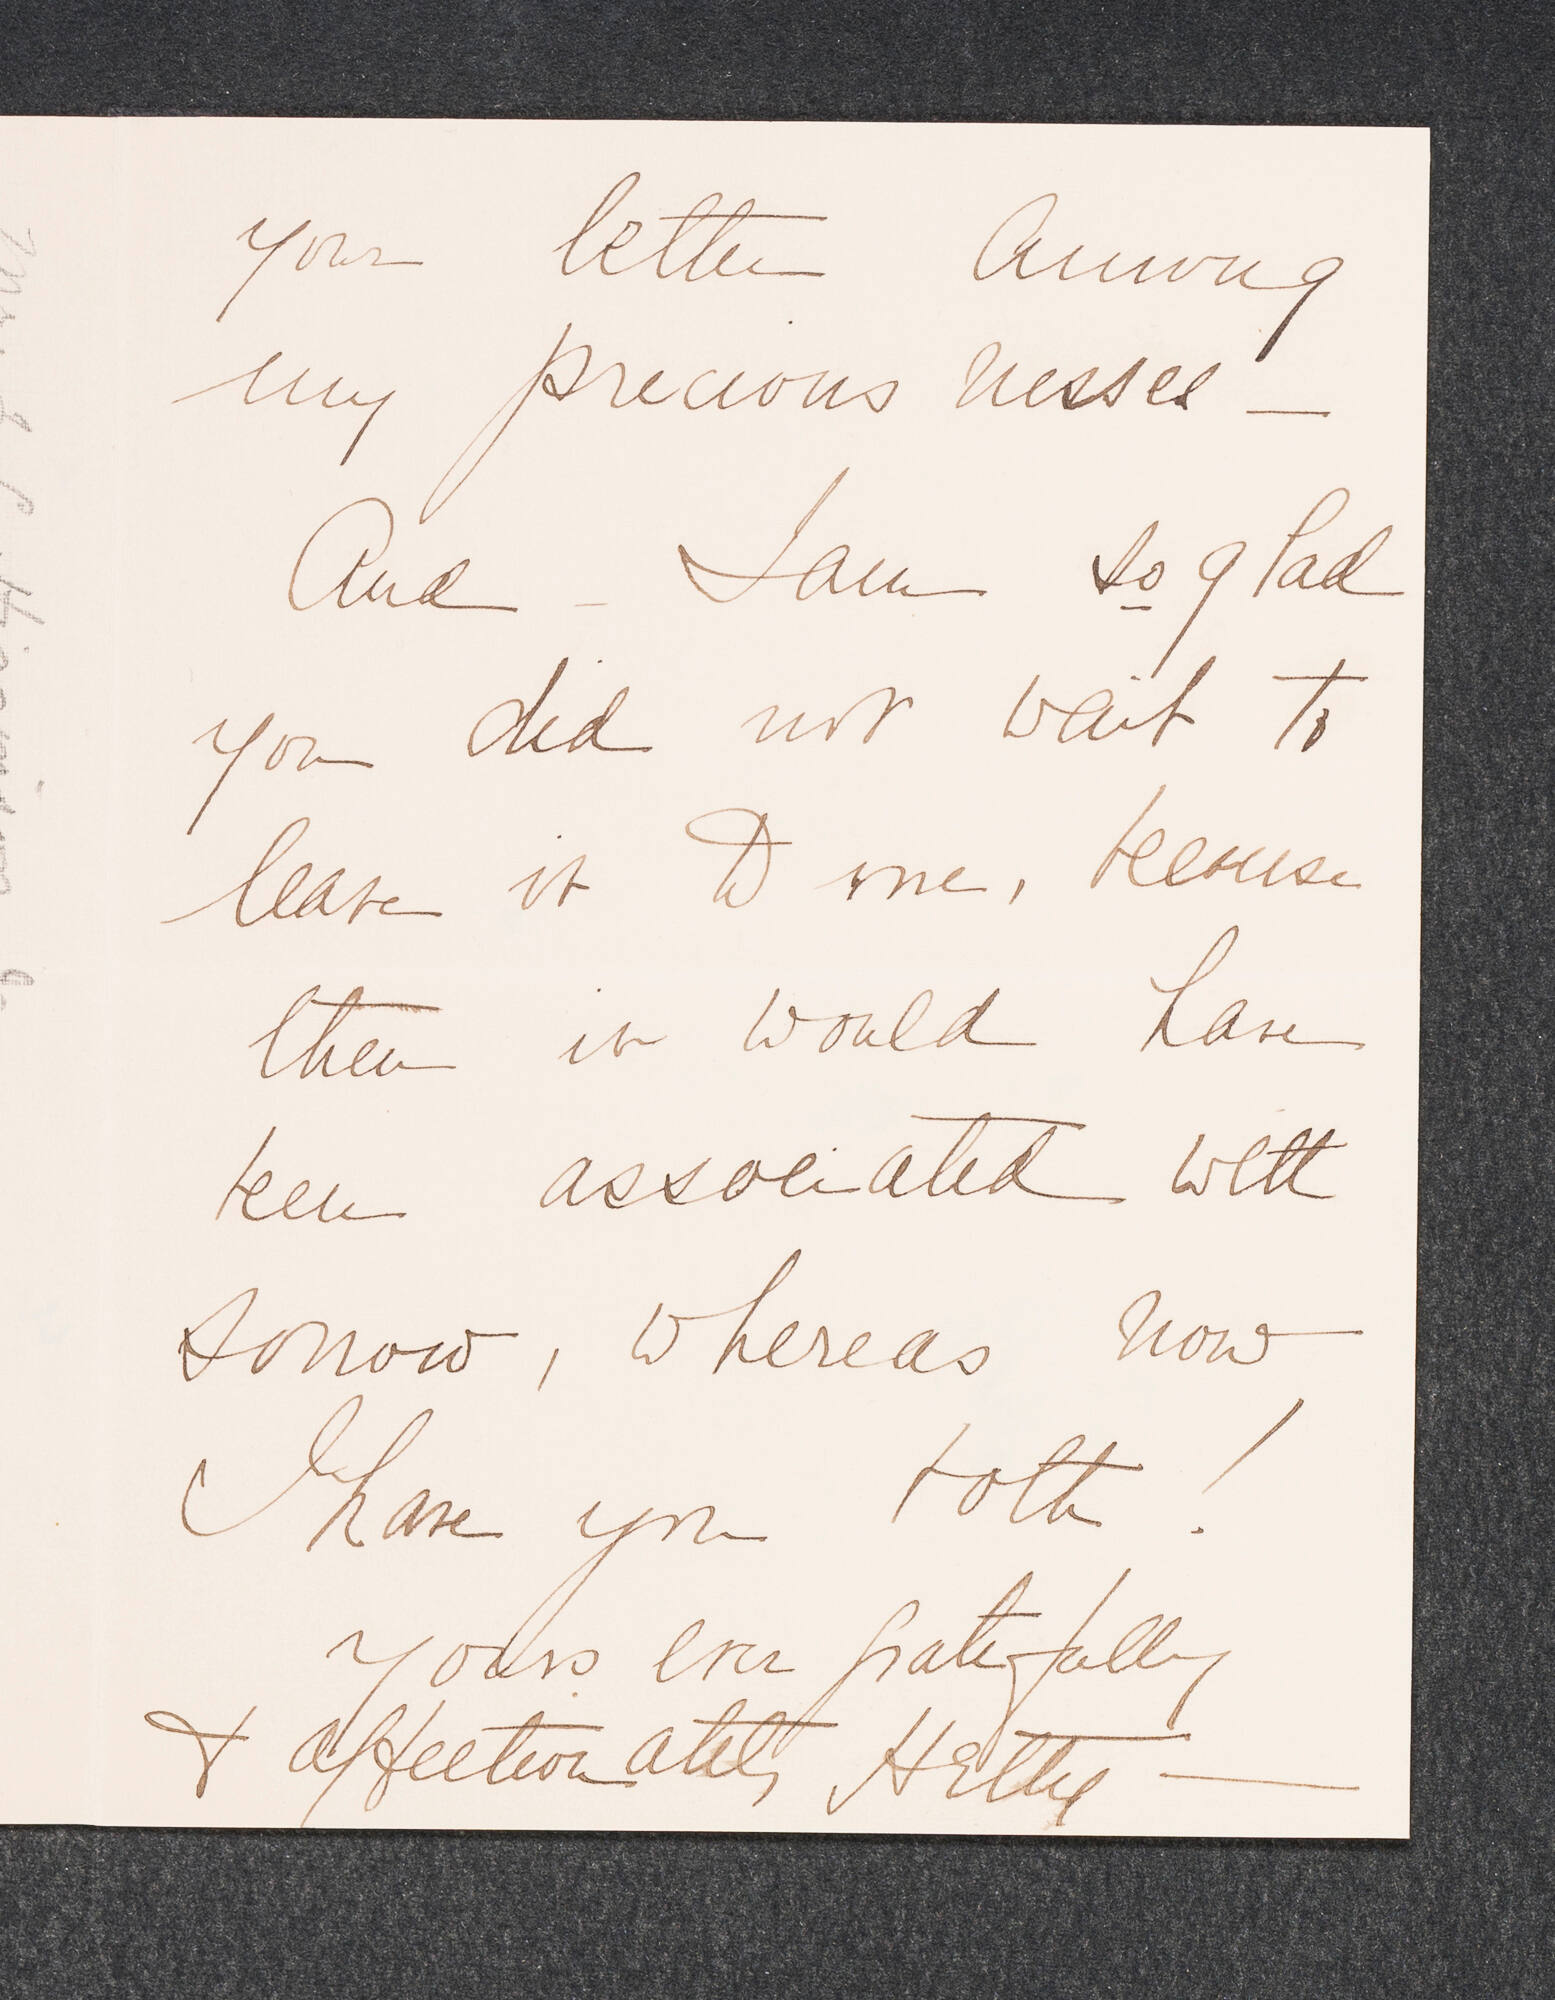 your letter among
my precious nesses —
And - I am so glad
you did not wait to
leave it to me, because
then it would have
been associated with
sorrow, whereas now
I have you both!
yours ever gratefully
& affectionately Hetty —